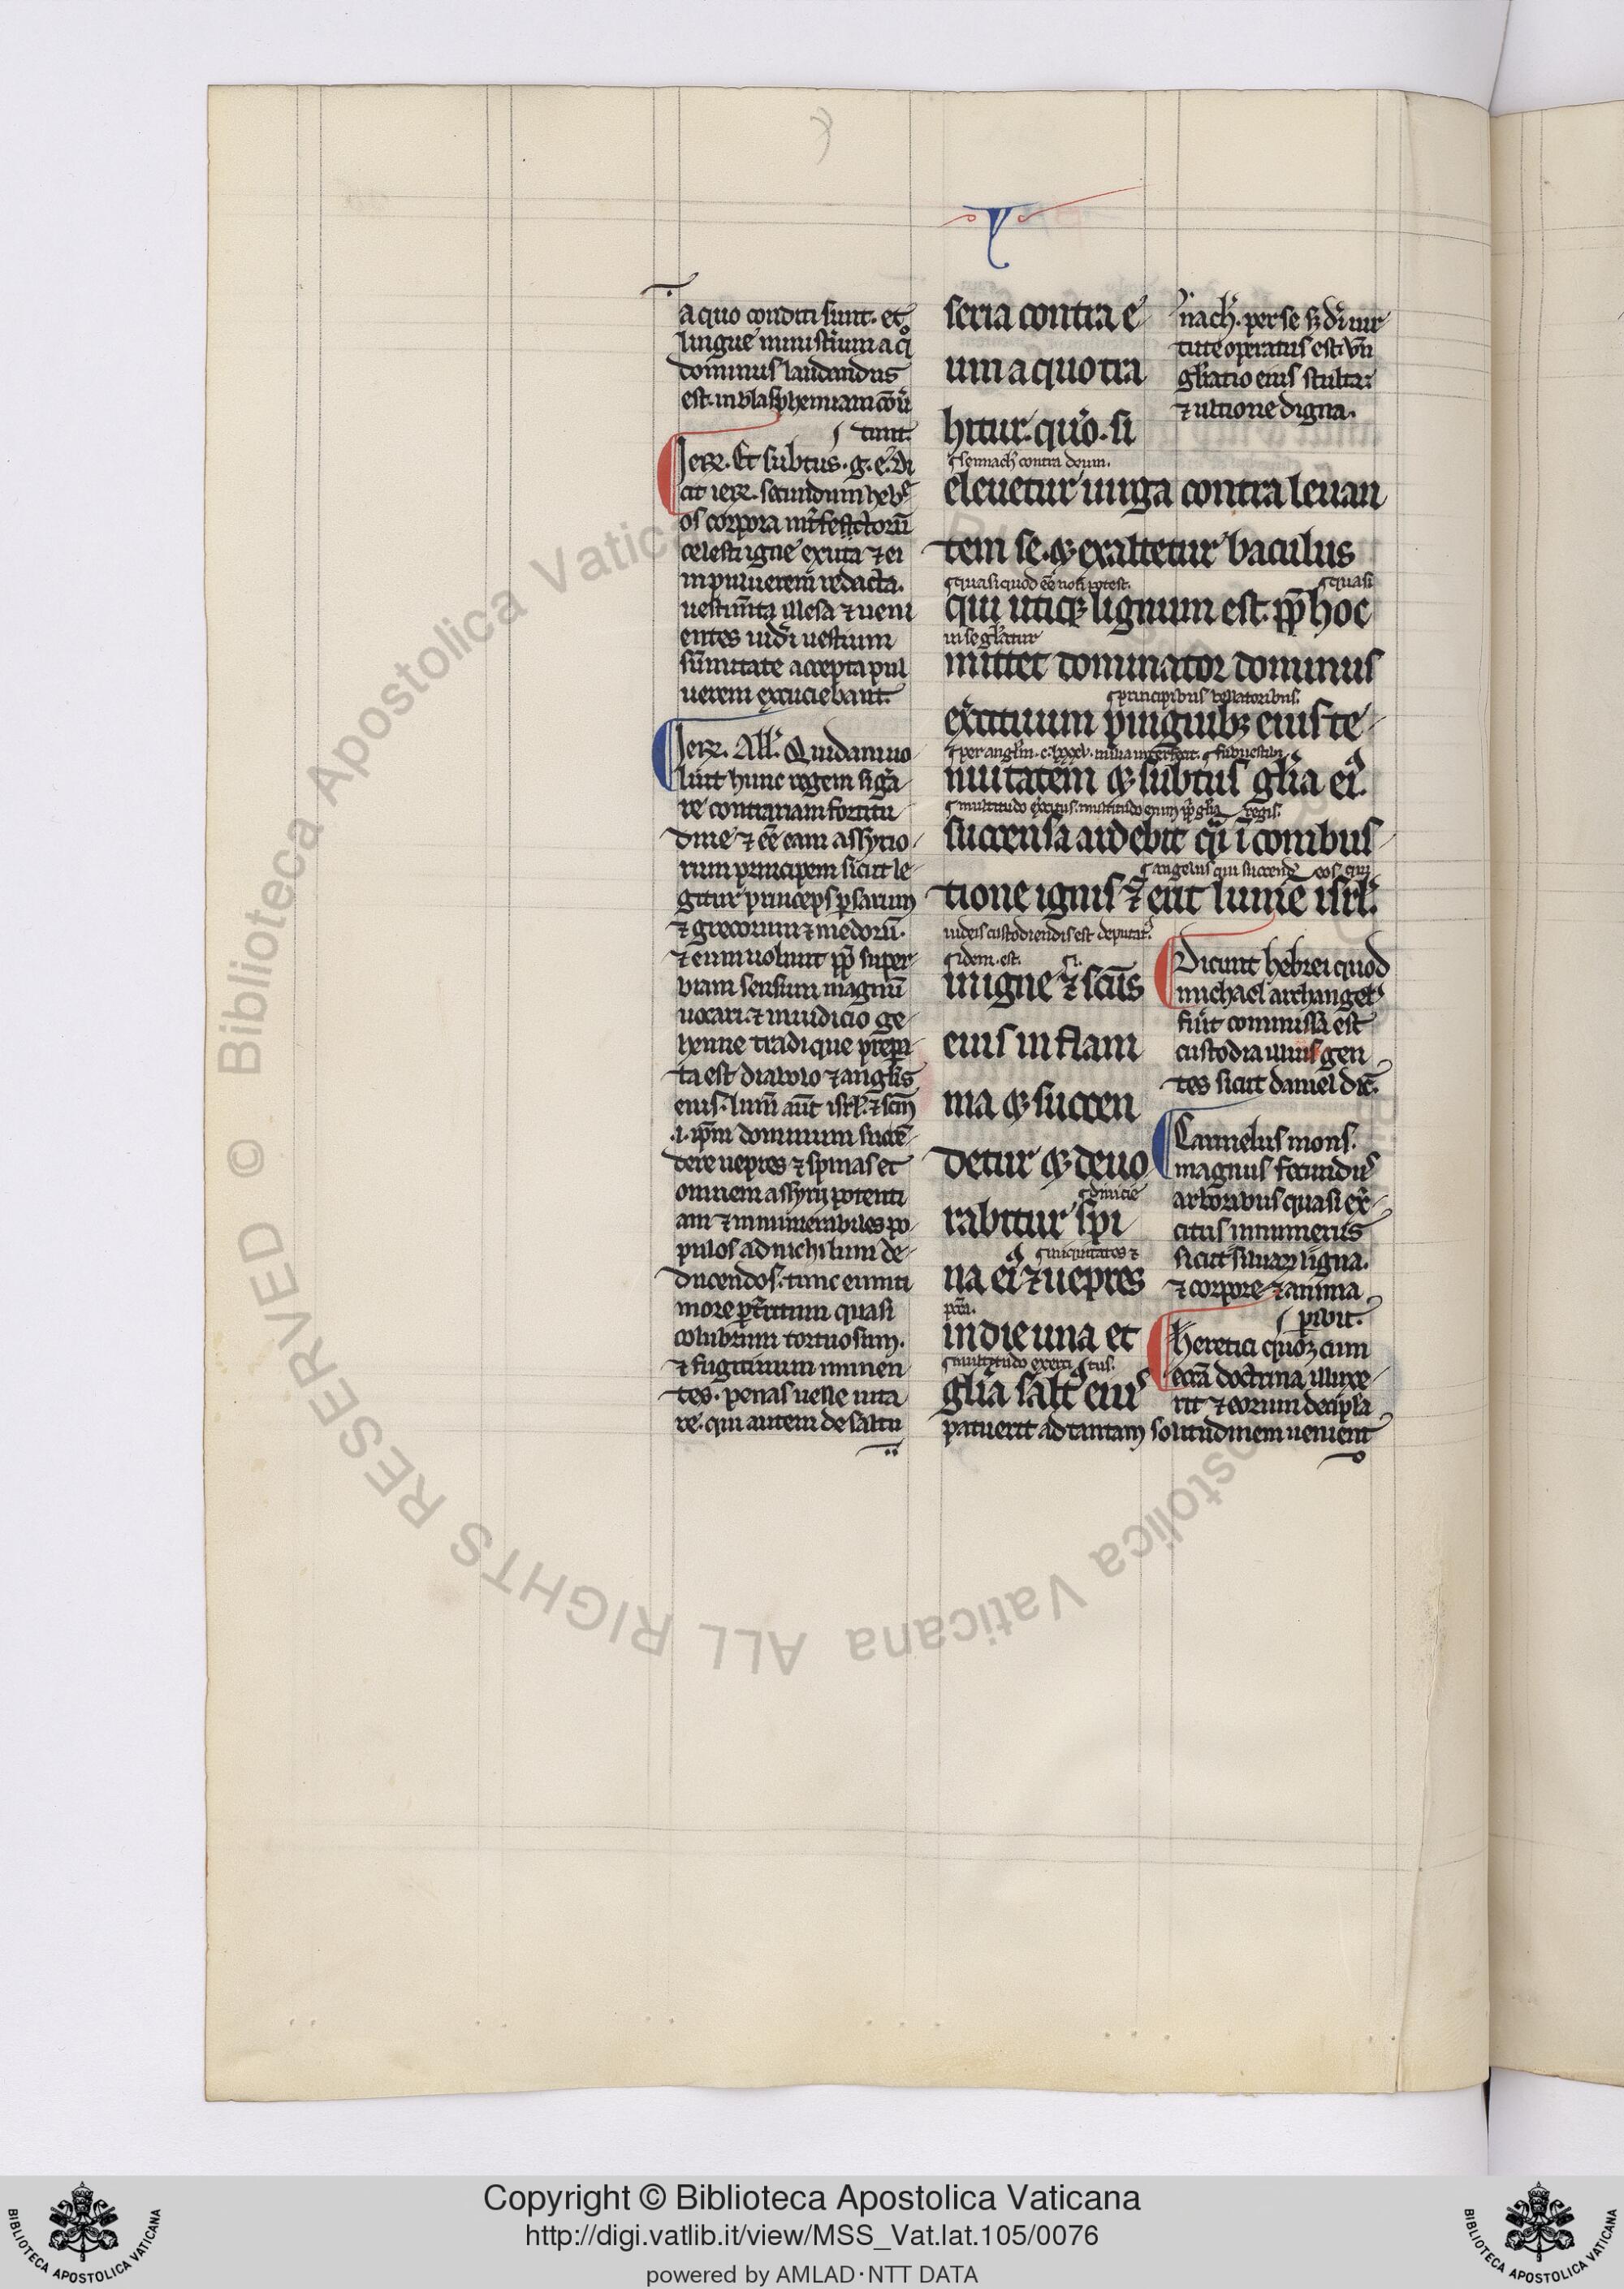 Y
a quo conditi sunt. et
lingue ministerium a qͦ
dominus laudandus
est. in blasphemiam cōũ
tunt.
Ierꝝ. Et subtus. g. e. Di
cit ierꝝ. secundum hebͤ
os corpora
celesti igne exuta ⁊ ei
in puluerem redacta.
uestim̃ta illesa ⁊ ueni
entes iudi uestium
sũmitate accepta pul
uerem excuciebant.
Ierꝝ. All'. Quidam uo
lunt hunc regem siga
re contrariam fortitu
dine ⁊ eē eam assyrio
rum principem sicut le
gitur princeps psarum
⁊ grecorum ⁊ medorũ.
⁊ eum uolunt pp̃ super
biam sensum magnũ
uocari. ⁊ in iudicio ge
henne tradi que prepa
ta est diabolo ⁊ anglis
eius. lum̃ aũt isrl'. ⁊ scm̃
.i. ipm̃ dominum succē
dere uepres ⁊ spinas et
omnem assyrij potenti
am ⁊ innumerabiles po
pulos ad nichilum de
ducendos. tunc
more quasi
colubrum tortuosum.
⁊ fugitiuum
tes. penas uelle uita
re. qui autem de saltu
seria contra e
um a quo tra
hitur. quo. si
sennach' contra deum.
eleuetur uirga contra leuan
tem se. ⁊ exaltetur baculus
quasi quod eē non potest. quasi
qui utiqꝫ lignum est. pp̃ hoc
in se glatur
mittet dominator dominus
principibus bellatoribus.
exercituum pinguibꝫ eius te
per anglm. c. lxxxv. milia
nuitatem ⁊ subtus gl'ia ei.
multitudo regis.
succensa ardebit qi ĩ combus
angelus qui succend eos qui
tione ignis ⁊ erit lumē isrl'.
iudeis custodiendis est deputat.
idem. est. .i.
in igne ⁊ scũs
eius in flam
ma ⁊ succen
detur ⁊ deuo
rabitur spi
iniquitates ⁊
na ei ⁊ uepres
in die una et
multitudo exerci tus.
gl'ia salt' eiuˢ
patuerit ad tantam solitudinem uenient
nach'. per se ꝫ di uir
tute operatus est. vñ
gl'iatio eius stulta
⁊ ultione digna.
Dicunt hebrei quod
michael archangel'
fuit commissa est
custodia illius gen
tes sicut daniel dic̃.
Carmelus mons.
magnus fecunduˢ
arboribus quasi exͬ
citus innumerus
sicut siluarꝝ ligna.
⁊ corpore ⁊ anima
pibit.
Heretici quoꝝ cum
ecc̃a doctrina illuxe
rit ⁊ eorum decipla
Copyright © Biblioteca Apostolica Vaticana
http://digi.vatlib.it/view/MSS_Vat.lat.105/0076
powered by AMLAD·NTT DATA
BIBLIOTECA APOSTOLICA VATICANA
BIBLIOTECA APOSTOLICA VATICANA
© Biblioteca Apostolica Vaticana ALL RIGHTS RESERVED